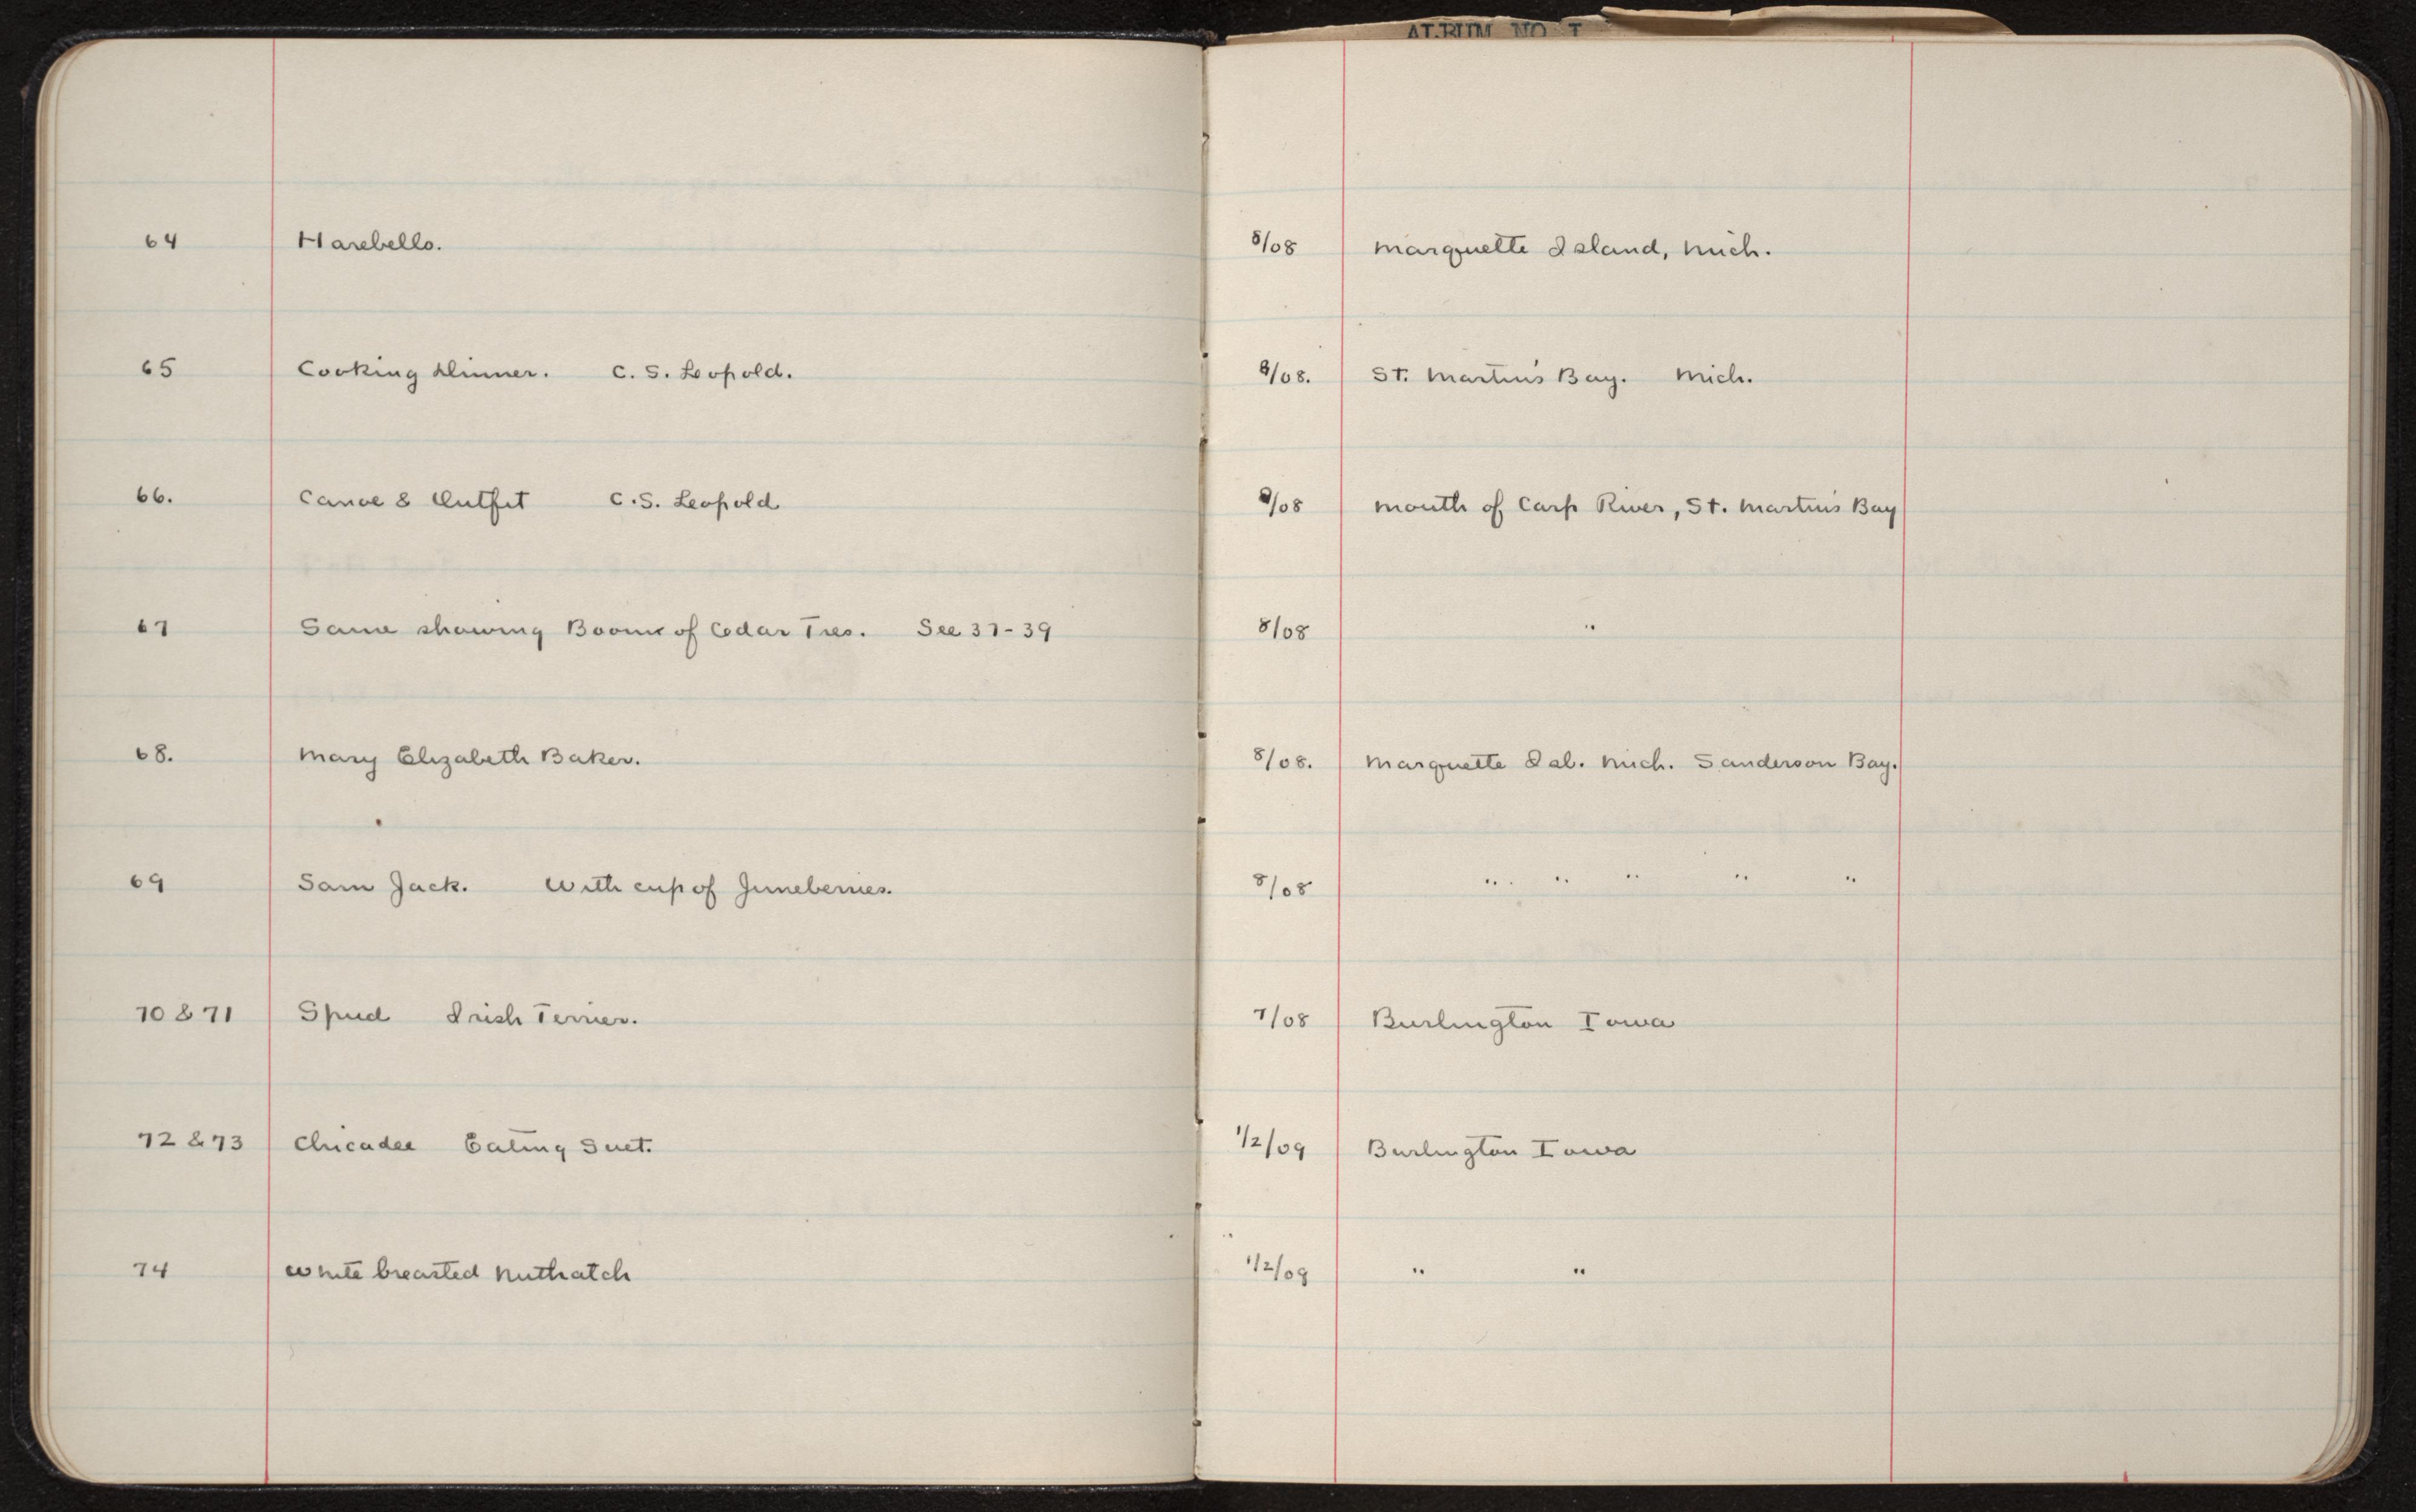 ALBUM NO I
64 Harebells. 8/08 Marquette Island, Mich.
65 Cooking Dinner. C. S. Leopold. 8/08. St. Martin's Bay. Mich.
66. Canoe & Outfit C.S. Leopold 8/08 Mouth of Carp River, St. Martin's Bay
67 Same showing Boom of Cedar Ties. See 37-39 8/08 "
68. Mary Elizabeth Baker. 8/08. Marquette Isl. Mich. Sanderson Bay.
69 Sam Jack. With cup of Juneberries. 8/08 " " " " "
70 & 71 Spud Irish Terrier. 7/08 Burlington Iowa
72 & 73 Chicadee Eating Suet. 1/2/09 Burlington Iowa
74 White breasted Nuthatch 1/2/09 " "